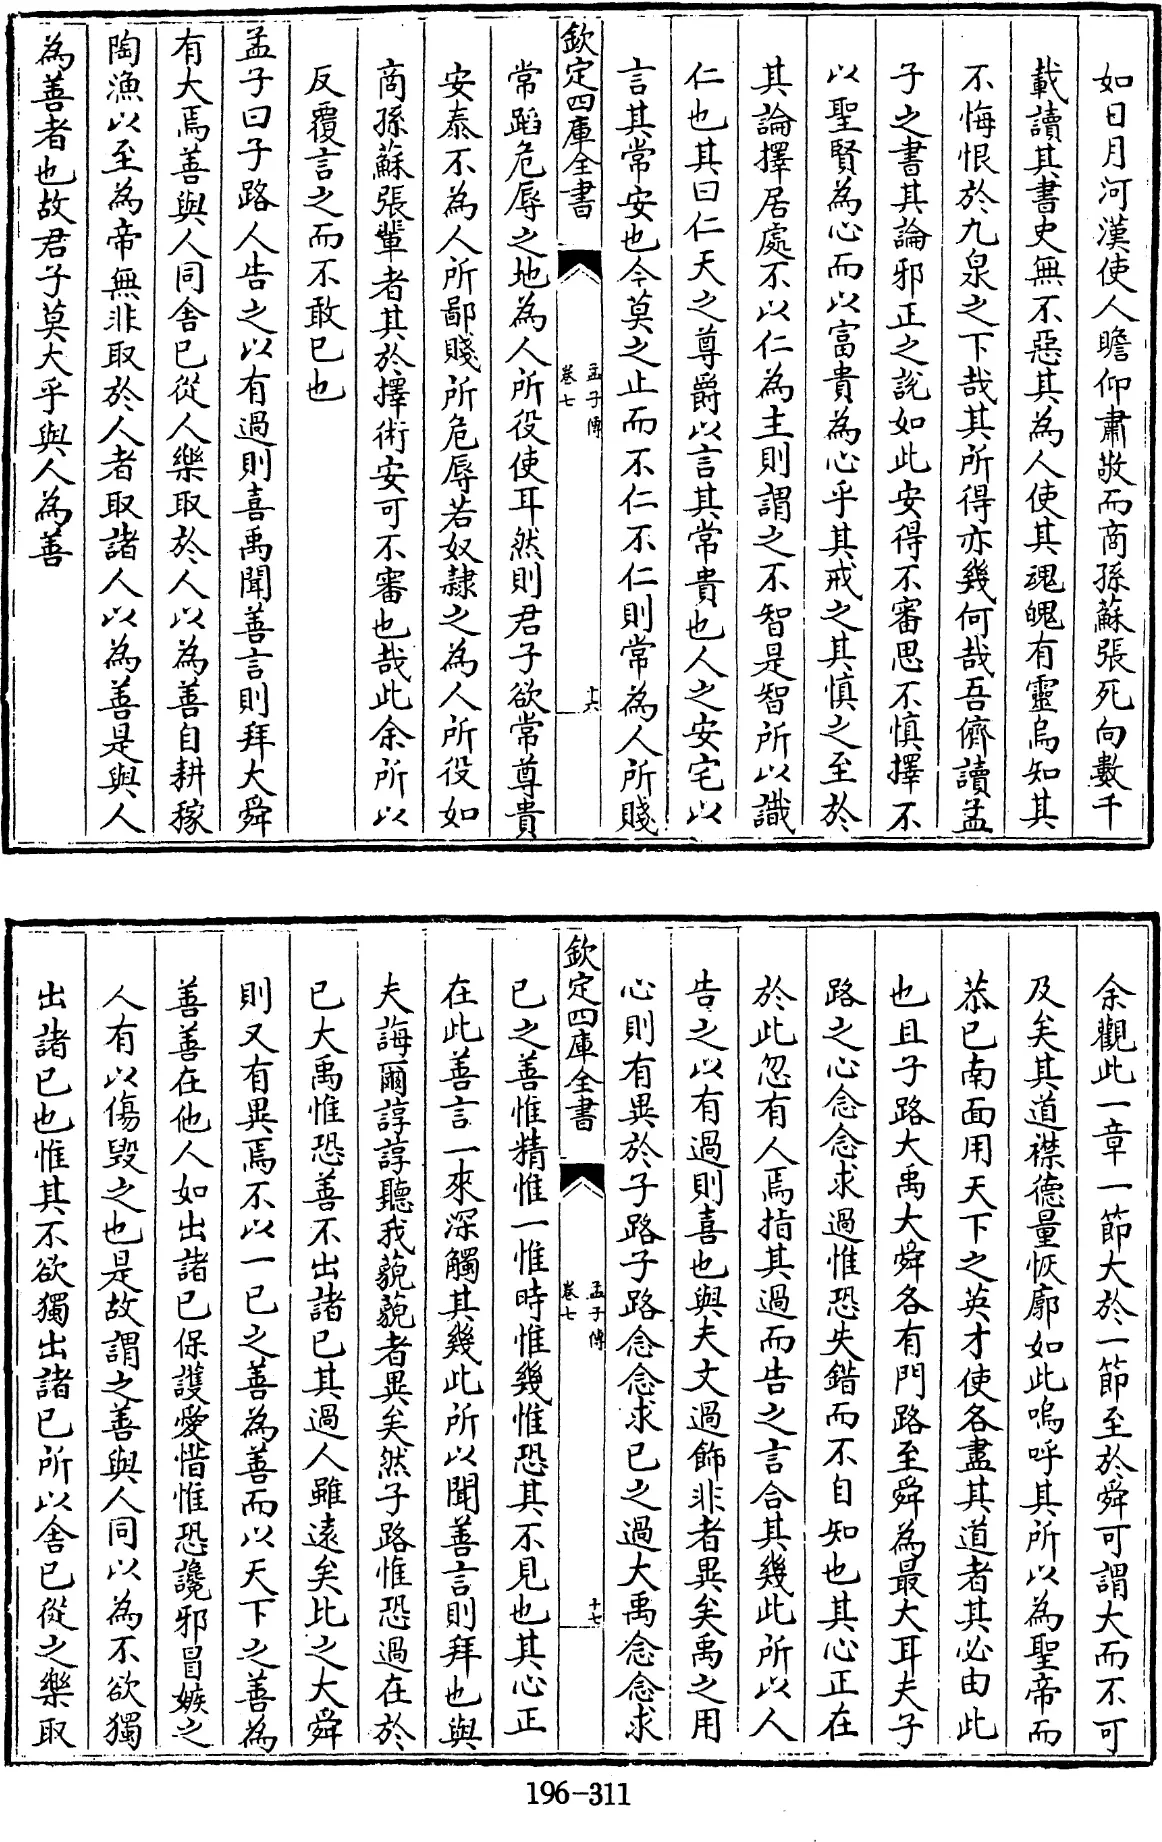 如日月河漢使人瞻仰肅敬而商孫蘇張死向數千
載讀其書史無不惡其為人使其魂魄有靈烏知其
不悔恨於九泉之下哉其所得亦幾何哉吾儕讀孟
子之書其論邪正之說如此安得不審思不慎擇不
以聖賢為心而以富貴為心乎其戒之其慎之至於
其論擇居處不以仁為主則謂之不智是智所以識
仁也其曰仁天之尊爵以言其常貴也人之安宅以
言其常安也今莫之止而不仁不仁則常為人所賤
欽定四庫全書
孟子傳
卷七
十六
常蹈危辱之地為人所役使耳然則君子欲常尊貴
安泰不為人所鄙賤所危辱若奴隸之為人所役如
商孫蘇張輩者其於擇術安可不審也哉此余所以
反覆言之而不敢已也
孟子曰子路人告之以有過則喜禹聞善言則拜大舜
有大焉善與人同舍已從人樂取於人以為善自耕稼
陶漁以至為帝無非取於人者取諸人以為善是與人
為善者也故君子莫大乎與人為善
余觀此一章一節大於一節至於舜可謂大而不可
及矣其道襟德量恢廓如此嗚呼其所以為聖帝而
恭已南面用天下之英才使各盡其道者其必由此
也且子路大禹大舜各有門路至舜為最大耳夫子
路之心念念求過惟恐失錯而不自知也其心正在
於此忽有人焉指其過而告之言合其幾此所以人
告之以有過則喜也與夫文過飾非者異矣禹之用
心則有異於子路子路念念求已之過大禹念念求
欽定四庫全書
孟子傳
卷七
十七
已之善惟精惟一惟時惟幾惟恐其不見也其心正
在此善言一來深觸其幾此所以聞善言則拜也與
夫誨爾諄諄聽我藐藐者異矣然子路惟恐過在於
已大禹惟恐善不出諸已其過人雖遠矣比之大舜
則又有異焉不以一已之善為善而以天下之善為
善善在他人如出諸已保護愛惜惟恐讒邪冒嫉之
人有以傷毀之也是故謂之善與人同以為不欲獨
出諸已也惟其不欲獨出諸已所以舍已從之樂取
196-311